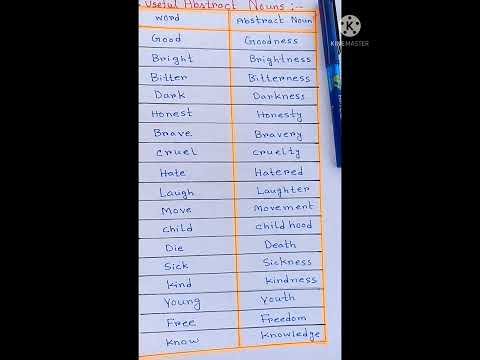 Useful Abstract Nouns :-
Word Abstract Noun
Good Goodness
Bright Brightness
Bitter Bitterness
Dark Darkness
Honest Honesty
Brave Bravery
Cruel Cruelty
Hate Hatered
Laugh Laughter
Move Movement
Child Childhood
Die Death
Sick Sickness
Kind Kindness
Young Youth
Free Freedom
Know Knowledge
KINEMASTER